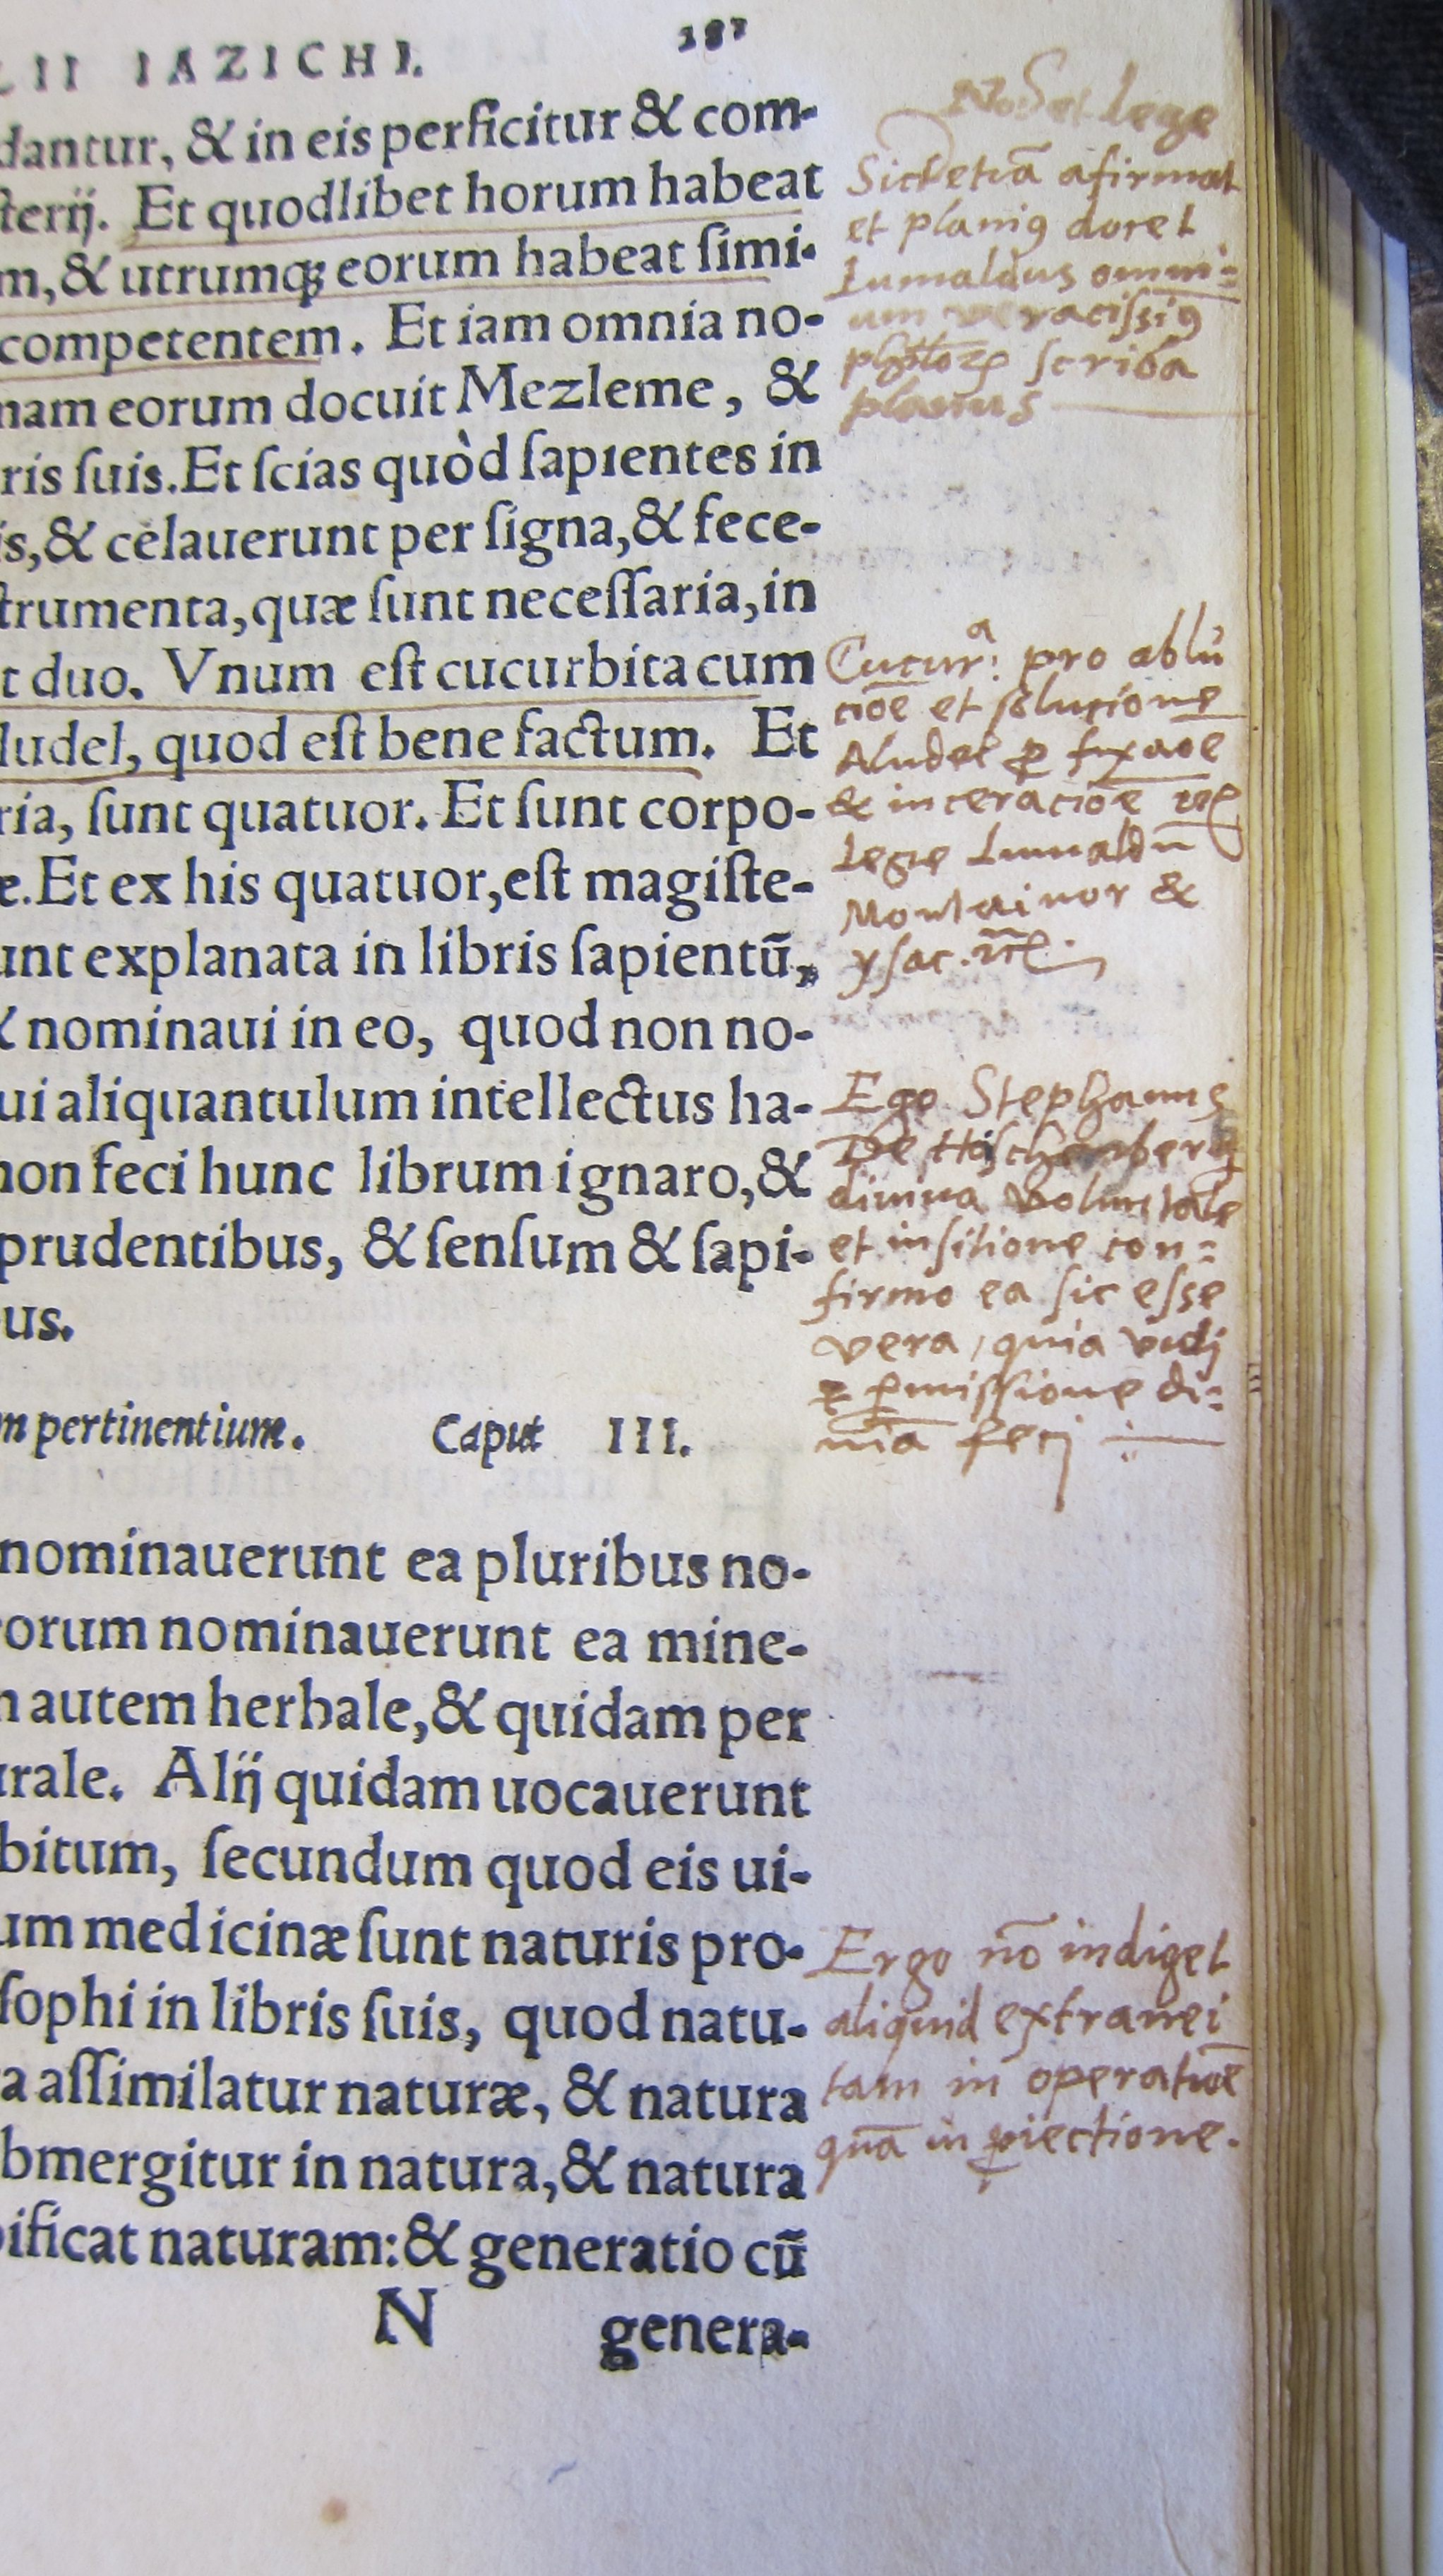 LII IAZICHI.
dantur, & in eis perficitur & com-
sterij. Et quodlibet horum habeat
m, & utrumq; eorum habeat simi-
competentem. Et iam omnia no-
nam eorum docuit Mezleme, &
ris suis. Et scias quòd sapientes in
is, & celauerunt per signa, & fece-
strumenta, quæ sunt necessaria, in
t duo. Vnum est cucurbita cum
ludel, quod est bene factum. Et
ria, sunt quatuor. Et sunt corpo-
e. Et ex his quatuor, est magiste-
unt explanata in libris sapientũ,
& nominaui in eo, quod non no-
ui aliquantulum intellectus ha-
non feci hunc librum ignaro, &
prudentibus, & sensum & sapi-
us.
m pertinentium. Caput III.
nominauerunt ea pluribus no-
orum nominauerunt ea mine-
n autem herbale, & quidam per
urale. Alij quidam uocauerunt
bitum, secundum quod eis ui-
um medicinæ sunt naturis pro-
sophi in libris suis, quod natu-
a assimilatur naturæ, & natura
bmergitur in natura, & natura
ificat naturam: & generatio cũ
N genera-
lege
etiā afirmat
et planiꝯ docet
omni=
um veracissiꝯ
scriba
planus
Cucurᵃ: pro ablu
cioē et solucione
Aludel ꝓ fixaōē
& inceracioē
Lege
&
ysac.
Ego Stephanus
De
divina voluntate
et insitione con=
firmo ea sic esse
vera, quia vidj
ꝑmissione di=
fecj
Ergo nō indiget
aliquid extranei
tam in operatiōē
quā in ꝓiectione.